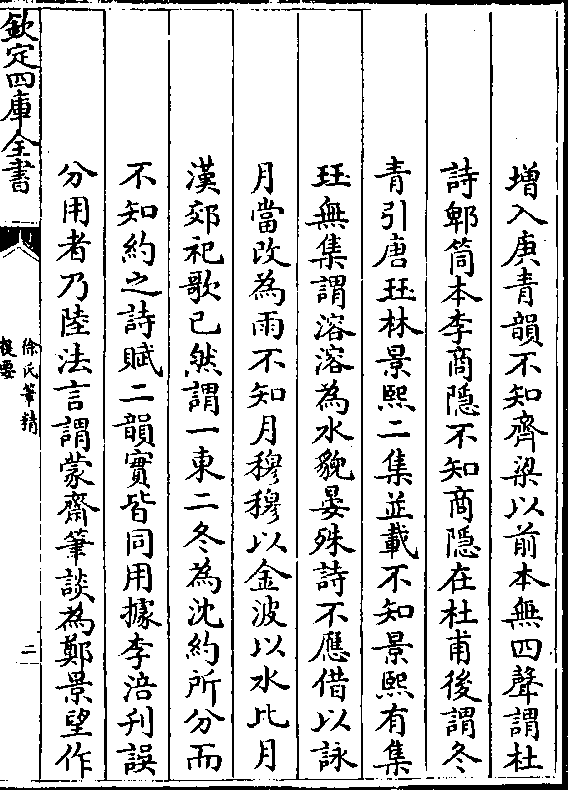 增入庚青韻不知齊梁以前本無四聲謂杜
詩郫筒本李商隱不知商隱在杜甫後謂冬
青引唐珏林景熙二集並載不知景熙有集
珏無集謂溶溶為水貌晏殊詩不應借以詠
月當改為雨不知月穆穆以金波以水比月
漢郊祀歌已然謂一東二冬為沈約所分而
不知約之詩賦二韻實皆同用據李涪刋誤
分用者乃陸法言謂蒙齋筆談為鄭景望作
欽定四庫全書
徐氏筆精
提要
二